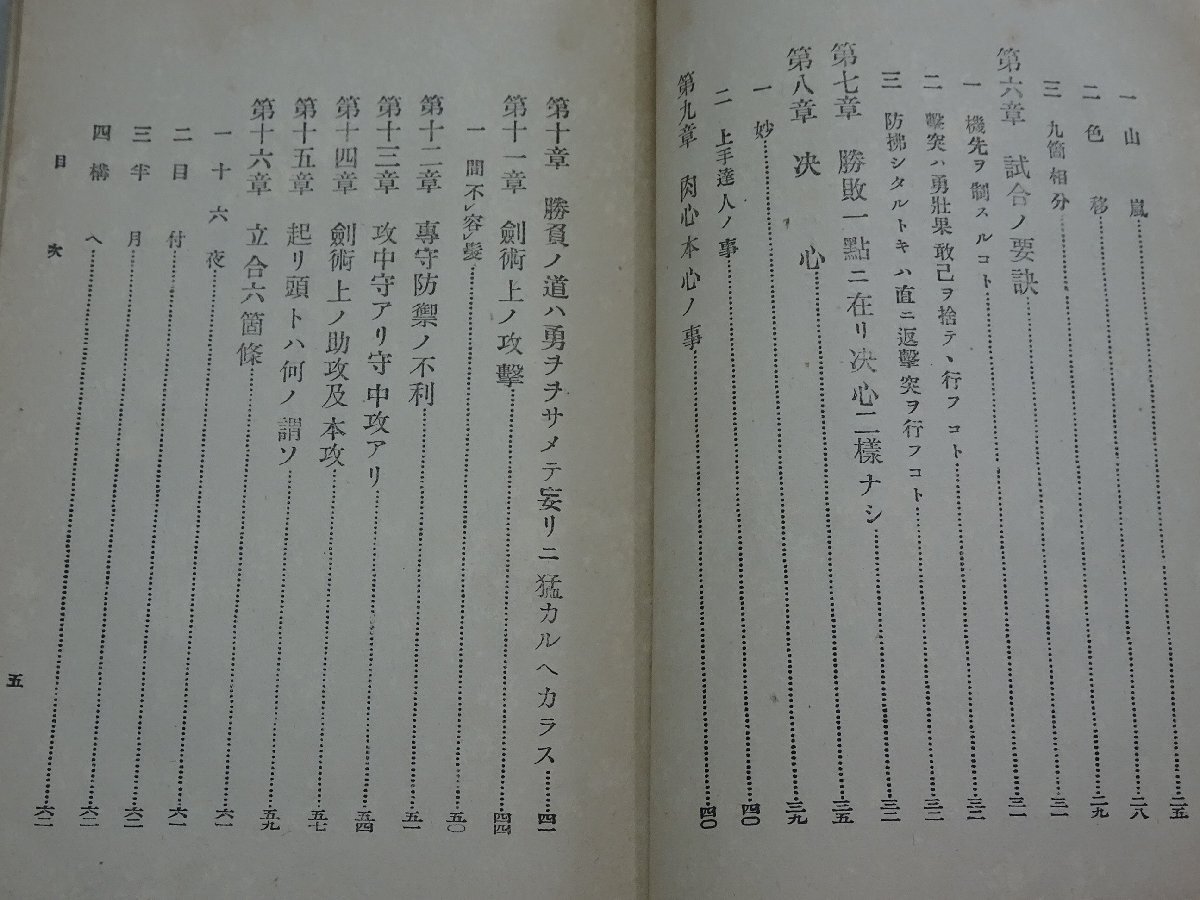 一 山嵐……二五
二 色移……二八
三 九箇相分……二九
第六章 試合ノ要訣……三一
一 機先ヲ制スルコト……三一
二 擊突ハ勇壯果敢己ヲ捨テヽ行フコト……三二
三 防拂シタルトキハ直ニ返擊突ヲ行フコト……三二
第七章 勝敗一點ニ在リ決心二樣ナシ……三三
第八章 決心……三五
一 妙……三九
二 上手達人ノ事……四〇
第九章 肉心本心ノ事……四〇
第十章 勝負ノ道ハ勇ヲヲサメテ妄リニ猛カルヘカラス……四一
第十一章 劍術上ノ攻擊……四四
一 間不レ容レ髮……五〇
第十二章 專守防禦ノ不利……五一
第十三章 攻中守アリ守中攻アリ……五四
第十四章 劍術上ノ助攻及本攻……五七
第十五章 起リ頭トハ何ノ謂ソ……五九
第十六章 立合六箇條……六一
一 十六夜……六一
二 目付……六一
三 半月……六二
四 構へ……六二
目次
五